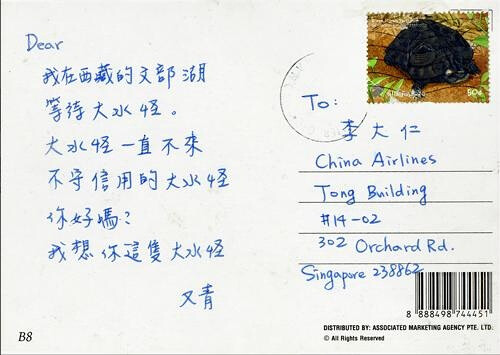 Dear
我在西藏的文部湖
等待大水怪。
大水怪一直不來
不守信用的大水怪
你好嗎?
我想你這隻大水怪
又青
B8
50c
To:
李大仁
China Airlines
Tong Building
#14-02
302 Orchard Rd.
Singapore 238862
8 888498 744451
DISTRIBUTED BY: ASSOCIATED MARKETING AGENCY PTE. LTD.
© All Rights Reserved